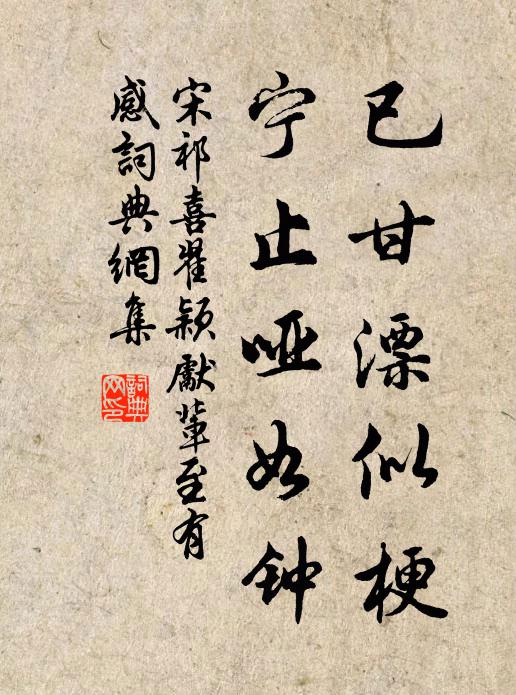 已甘漂似梗
宁止哑如钟
宋祁喜翟颖獻輩至有
感詞典網集
詞典网印